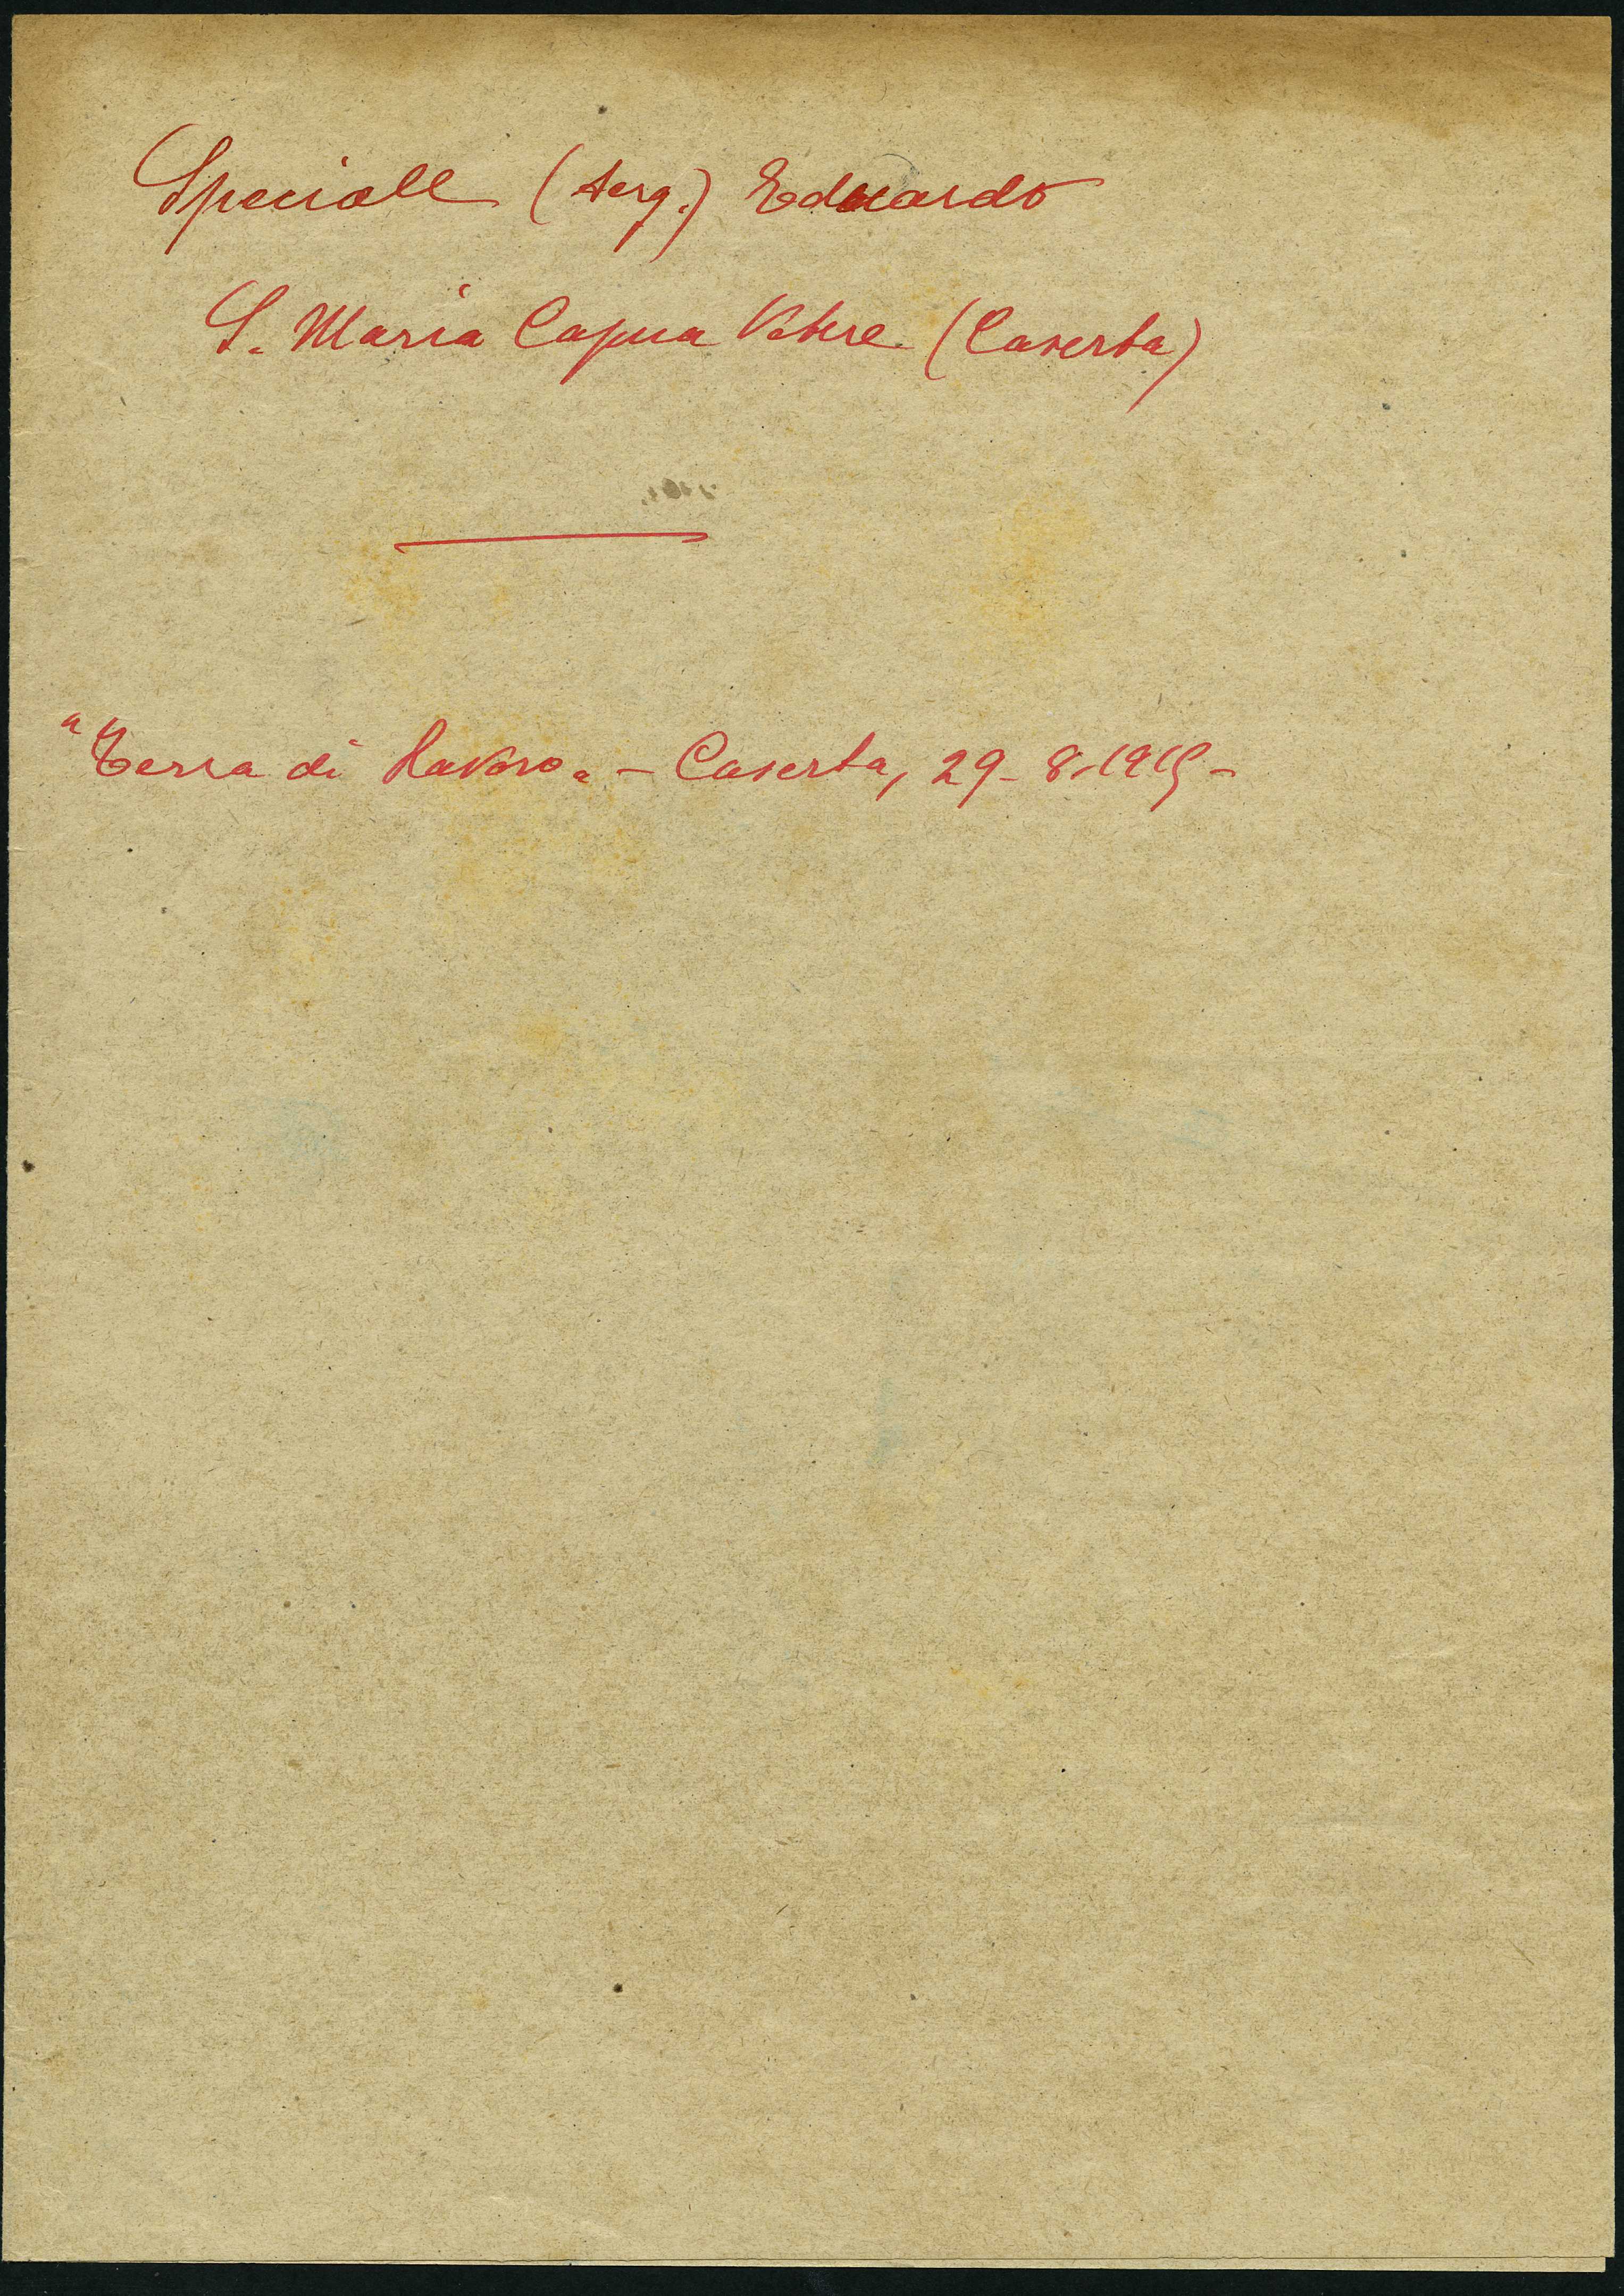 Speciale (serg.) Eduardo
S. Maria Capua Vetere (Caserta)
"Terra di Lavoro" - Caserta, 29-8-1915-